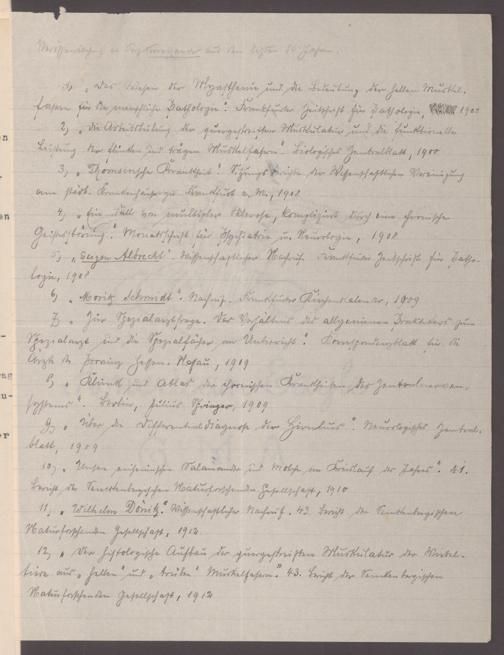 Wissenschaftliche aus den letzten 10 Jahren.
1) „Das Wesen der Myasthenie und die Bedeutung der hellen Muskel-
fasern für die menschliche Pathologie". Frankfurter Zeitschrift für Pathologie, 1908
2) „Die Arbeitsteilung der quergestreiften Muskulatur und die funktionelle
Leistung der flinken und trägen Muskelfasern". Biologisches Zentralblatt, 1908
3) „Thomsensche Krankheit". Sitzungsberichte der Wissenschaftlichen Vereinigung
am städt. Krankenhause Frankfurt a. M., 1908
4) „Ein Fall von multipler Sklerose, kompliziert durch eine chronische
Geistesstörung". Monatsschrift für Psychiatrie u. Neurologie, 1908
5) „Eugen Albrecht". Wissenschaftlicher Nachruf. Frankfurter Zeitschrift für Patho-
logie, 1908
6) „Moritz Schmidt". Nachruf. Frankfurter Kirchenkalender, 1909
7) „Zur Spezialarztfrage. Das Verhältnis des allgemeinen Praktikers zum
Spezialarzt und die Spezialfächer im Unterricht". Korrespondenzblatt für die
Ärzte der Provinz Hessen-Nassau, 1909
8) „Klinik und Atlas der chronischen Krankheiten des Zentralnerven-
systems". Berlin, Julius Springer, 1909
9) „Über die Differentialdiagnose der Hirnlues". Neurologisches Zentral-
blatt, 1909
10) „Unsere einheimischen Salamander und Molche im Kreislauf des Jahres". 41.
Bericht der Senckenbergischen Naturforschenden Gesellschaft, 1910
11) „Wilhelm Dönitz". Wissenschaftlicher Nachruf. 43. Bericht der Senckenbergischen
Naturforschenden Gesellschaft, 1912
12) „Der histologische Aufbau der quergestreiften Muskulatur der Wirbel-
tiere aus „hellen" und „trüben" Muskelfasern". 43. Bericht der Senckenbergischen
Naturforschenden Gesellschaft, 1912